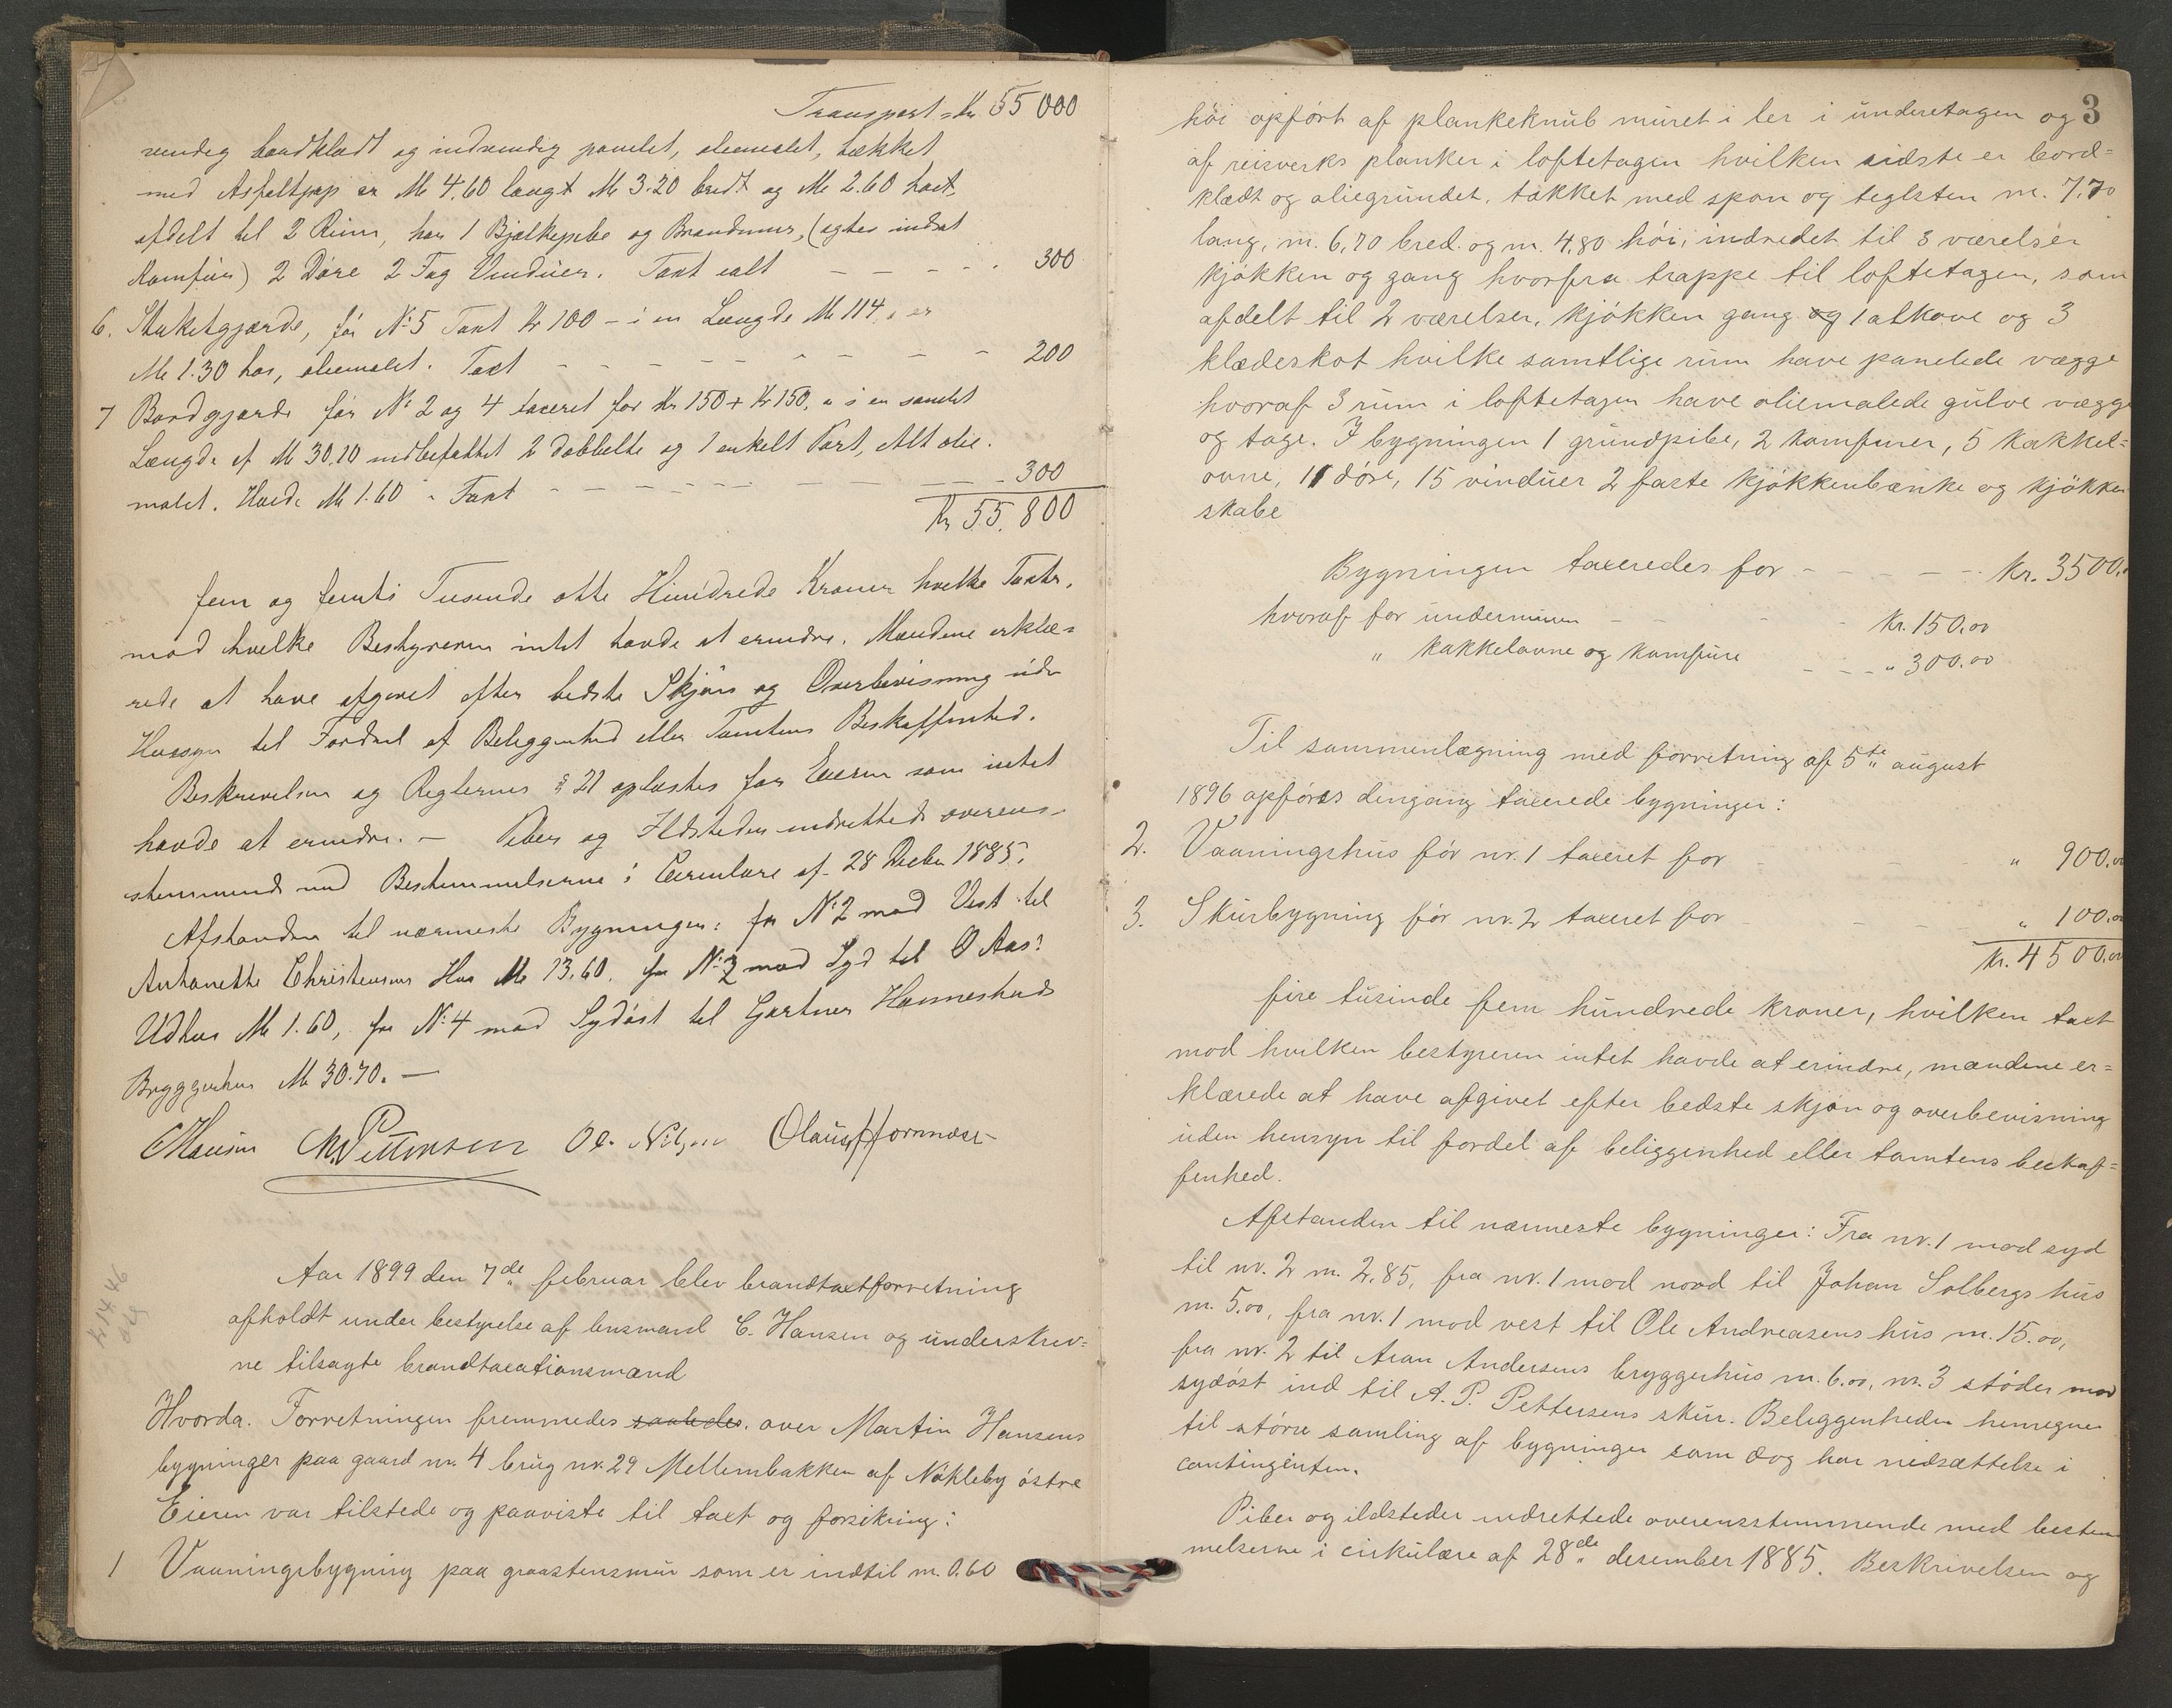 Transport = Kr. 55 000
vendig bordklædt og indvendig panelet, oliemalet, tækket
med Asfaltpap er M 4.60 langt M 3.20 bredt og M 2.60 høit,
afdelt til 2 Rum, har 1 Bjælkepibe og Brandmur, (agtes indsat
Komfur) 2 Døre 2 Fag Vinduer. Taxt ialt - - - - - 300
6. Stakitgjærde, før No 5 Taxt Kr 100 - i en Længde M 114, er
M 1.30 høi, oliemalet. Taxt - - - - - - - 200
7 Bordgjærde før No 2 og 4 taxeret for Kr 150 + Kr 150, i en samlet
Længde af M 30,20 indbefattet 2 dobbelte og 1 enkelt Port, Alt olie-
malet. Høide M 1.60 - Taxt - - - - - - - 300
Kr 55.800
fem og femti Tusinde otte Hundrede Kroner hvilke Taxter,
mod hvilke Bestyreren intet havde at erindre. Mændene erklæ-
rede at have afgivet efter bedste Skjøn og Overbevisning uden
Hensyn til Fordeel af Beliggenhed eller Tomtens Beskaffenhed.
Beskrivelsen og Reglernes § 21 oplæstes for Eieren som intet
havde at erindre. - Piber og Ildsteder indrettede overens-
stemmende med Bestemmelserne i Circulære af 28 Decbr 1885.
Afstanden til nærmeste Bygninger: fra No 2 mod Vest til
Antonette Christensens Hus M 13.60. fra No 2 mod Syd til O Aas'
Udhus M 1.60, fra No 4 mod Sydøst til Gartner Hannestads
Bryggerhus M 30.70. -
C Hansen Chr. Pettersen Ole Nilsen Olaus Hornnæs
Aar 1899 den 7de februar blev brandtaxtforretning
afholdt under bestyrelse af lensmand C. Hansen og underskrev-
ne tilsagte brandtaxationsmænd
Hvorda. Forretningen fremmedes saaledes. over Martin Hansens
bygninger paa gaard nr. 4 brug nr. 29 Mellembakken af Nøkleby østre
Eieren var tilstede og paaviste til taxt og forsikring:
1 Vaaningsbygning paa graastensmur som er indtil m. 0.60
3
høi opført af plankeknub muret i ler i underetagen og
af reisverks planker i loftetagen hvilken sidste er bord-
klædt og oliegrundet, tækket med spon og teglsten m. 7,70
lang, m. 6,70 bred og m. 4,80 høi, indredet til 3 værelser
kjøkken og gang hvorfra trappe til loftetagen, som
afdelt til 2 værelser, kjøkken gang og 1 alkove og 3
klædeskot hvilke samtlige rum have panelede vægge
hvoraf 3 rum i loftetagen have oliemalede gulve vægge
og tage. I bygningen 1 grundpibe, 2 komfurer, 5 kakkel-
ovne, 11 døre, 15 vinduer 2 faste kjøkkenbænke og kjøkken
skabe
Bygningen taxeredes for - - - - - kr. 3500.
hvoraf for undermuren - - - Kr. 150.00
" kakkelovne og komfure - - - " 300.00
Til sammenlægning med forretning af 5te august
1896 opføres dengang taxerede bygninger:
2. Vaaningshus før nr. 1 taxeret for - - " 900.00
3. Skurbygning før nr. 2 taxeret for - - - " 100.00
Kr. 4500.00
fire tusinde fem hundrede kroner, hvilken taxt
mod hvilken bestyreren intet havde at erindre, mændene er-
klærede at have afgivet efter bedste skjøn og overbevisning
uden hensyn til fordel af beliggenhed eller tomtens beskaf-
fenhed.
Afstanden til nærmeste bygninger: Fra nr. 1 mod syd
til nr. 2 m. 2,85, fra nr. 1 mod nord til Johan Solbergs hus
m. 5.00, fra nr. 1 mod vest til Ole Andreasens hus m. 15.00,
fra nr. 2 til Aron Andersens bryggerhus m. 6.00, nr. 3 støder mod
sydøst ind til A. P. Pettersens skur. Beliggenheden henregnes
til større samling af bygninger som dog har nedsættelse i
contingenten.
Piber og ildsteder indrettede overensstemmende med bestem
melserne i cirkulære af 28de desember 1885. Beskrivelsen og